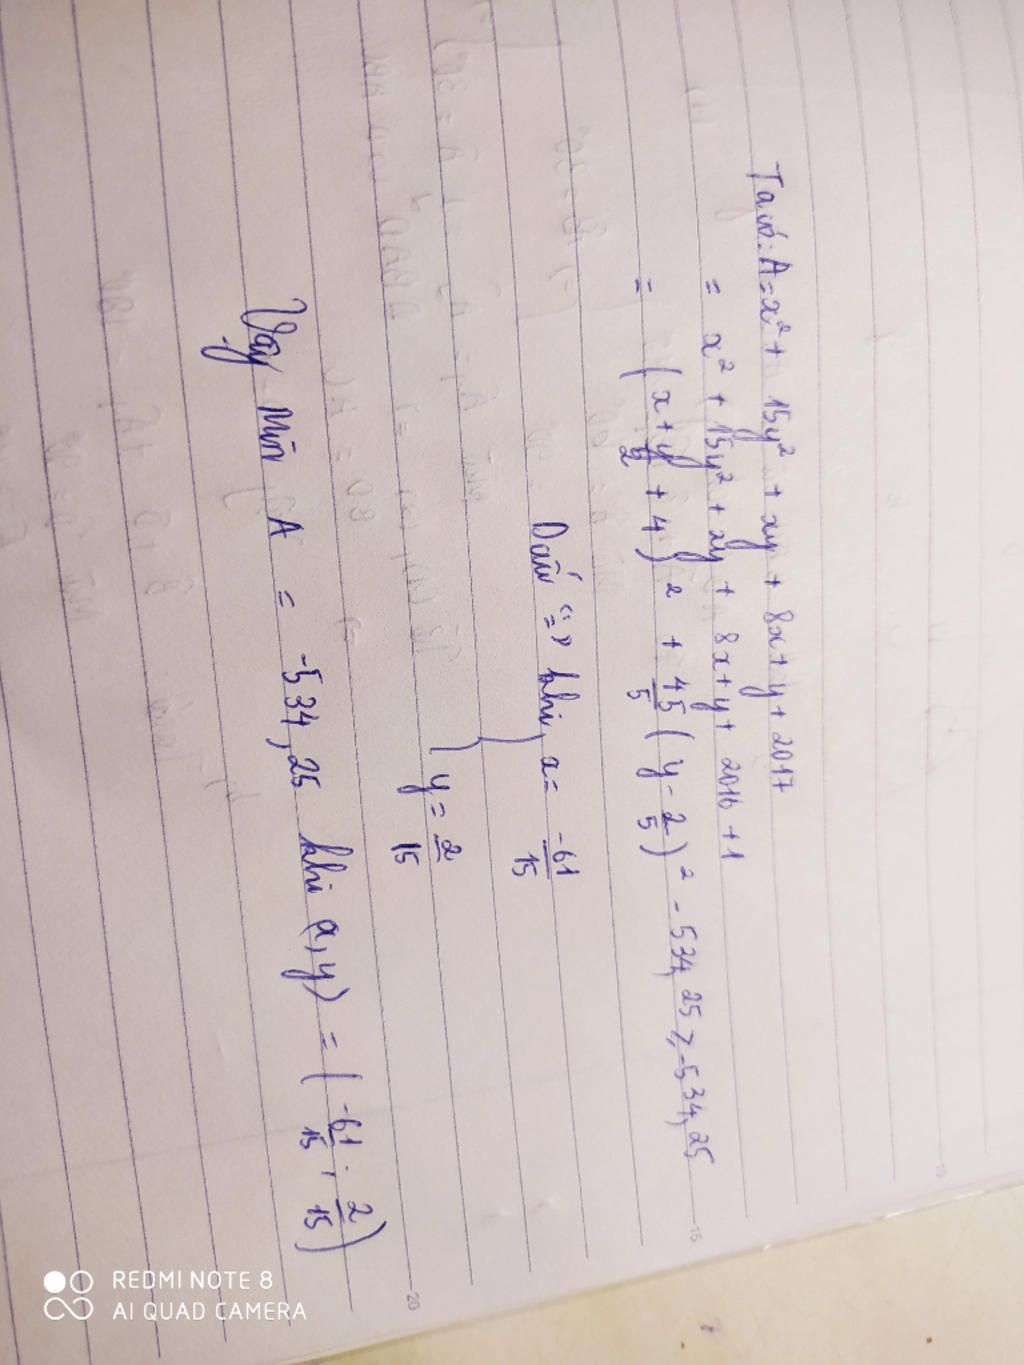 Ta có: A = x² + 15y² + xy + 8x + y + 2017
= x² + 15y² + xy + 8x + y + 2016 + 1
= (x + y/2 + 4)² + 45/5 (y - 2/5)² - 534,25 ≥ -534,25
Dấu "=" khi x = -61/15
y = 2/15
Vậy Min A = -534,25 khi (x, y) = (-61/15 ; 2/15)
15
20
REDMI NOTE 8
AI QUAD CAMERA